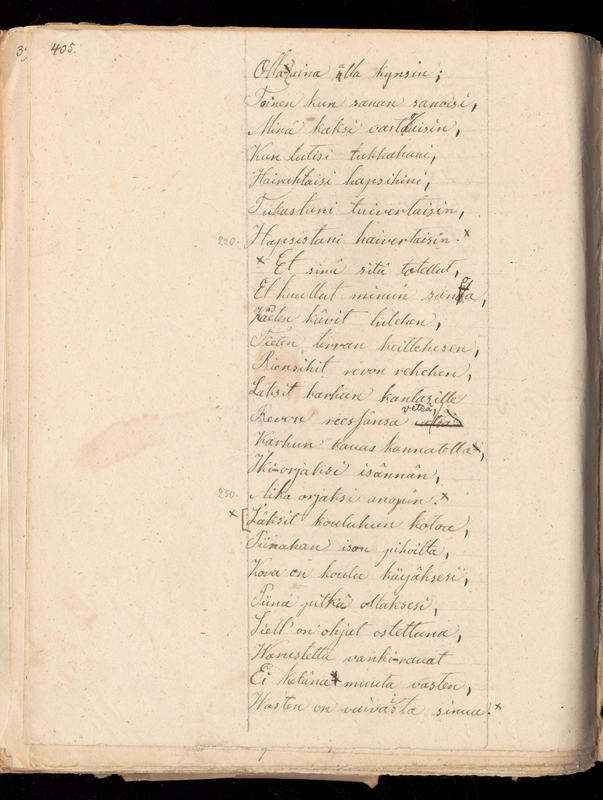 405.
Olla aina alla kynsin;
Toinen kun sanan sanoisi,
Minä kaksi vastaisin,
Kun lutisi tukkahani,
Hairahtaisi hapsihini,
Tukastani tuivertaisin,
220. Hapsistani haivertaisin. x
x Et sinä sitä totellut,
Et kuullut minun sanoa,
Käeten kävit tulehen,
Tieten tervan keittehesen,
Riensihit revon rekehen,
Läksit karhun kantasille
Revon reessänsä veteä
Karhun kauas kannatella,
Iki-orjaksi isännän,
230. Aika orjaksi anopin. x
x [Läksit kouluhun kotoa,
Piinahan ison pihoilta,
Kova on koulu käyäksesi,
Piina pitkä ollaksesi,
Siell' on ohjat ostettuna,
Warustettu vanki-rauat
Ei ketänä muuta vasten,
Wasten on vaivaista sinua. x